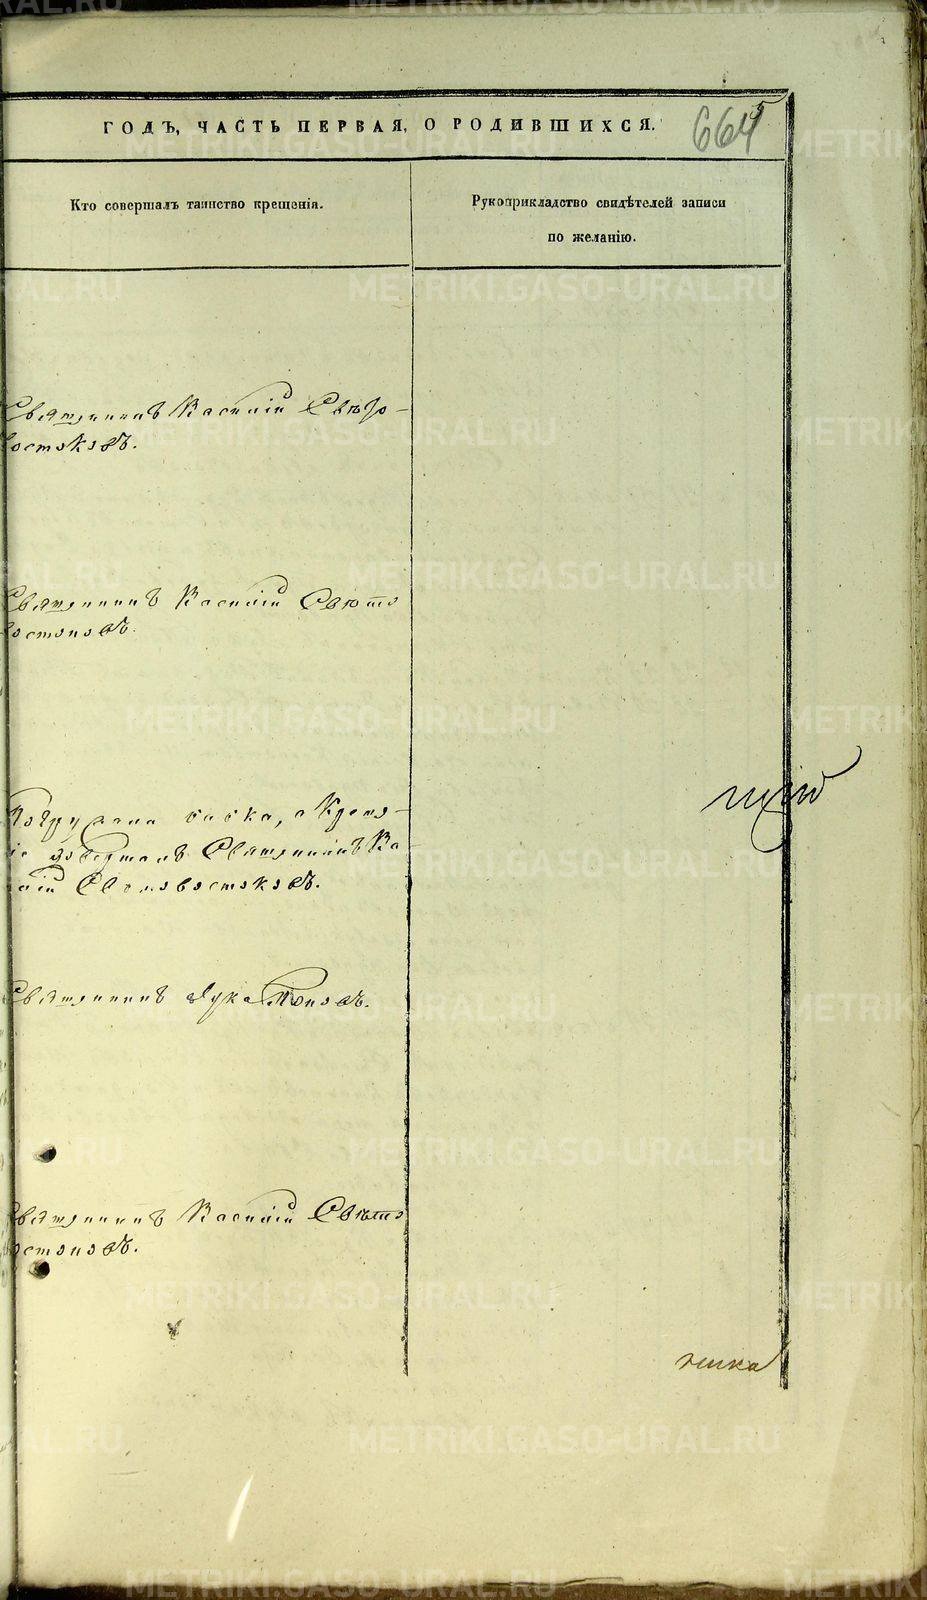 ГОДЪ, ЧАСТЬ ПЕРВАЯ, О РОДИВШИХСЯ.
664
Кто совершалъ таинство крещенія.
Рукоприкладство свидѣтелей записи
по желанію.
Священникъ Василій Свѣто-
востоковъ.
Священникъ Василій Свѣто
востоковъ.
бабка, а
совершалъ Священникъ Ва
силій Свѣтовостоковъ.
Священникъ Лука Поповъ.
Священникъ Василій Свѣто
востоковъ.
METRIKI.GASO-URAL.RU